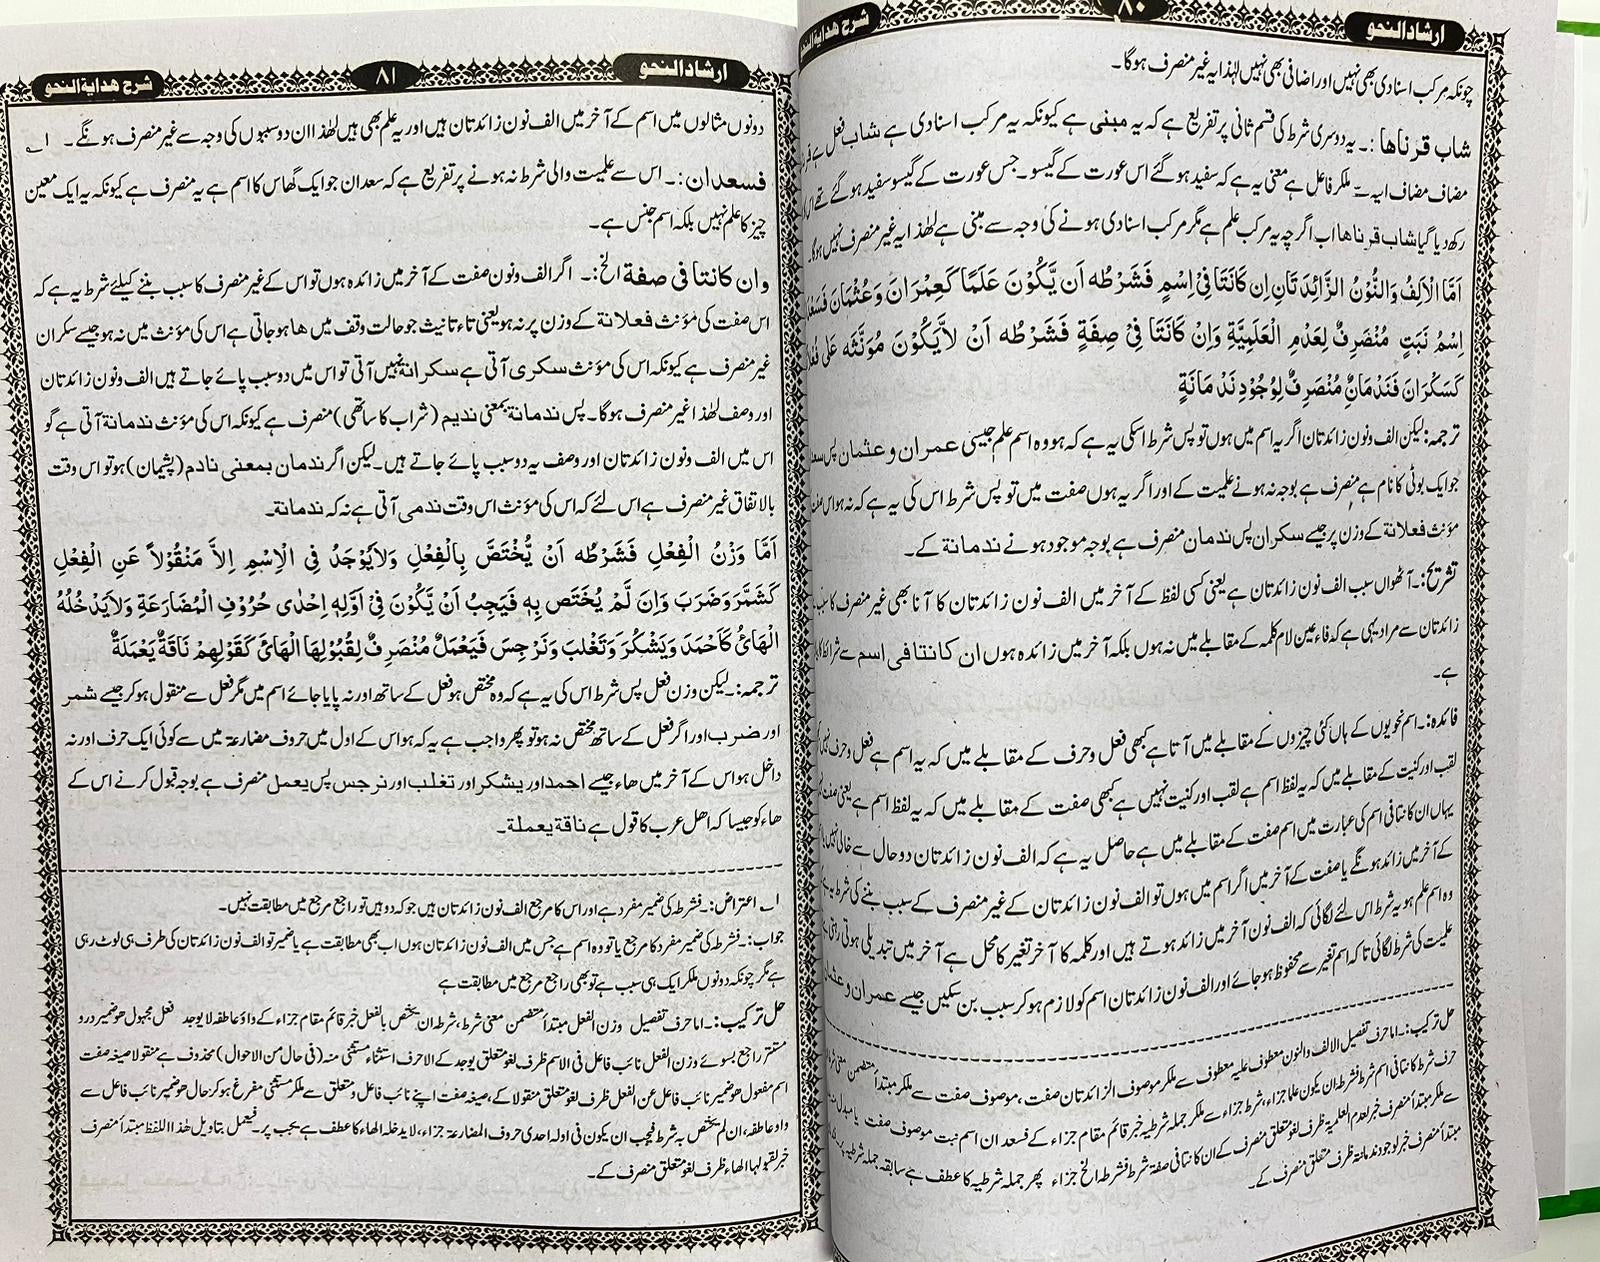 ارشاد النحو ۸۰ شرح هداية النحو
چونکہ مرکب اسنادی بھی نہیں اور اضافی بھی نہیں لہٰذا یہ غیر منصرف ہوگا۔
شاب قرناها :۔ یہ دوسری شرط کی قسم ثانی پر تفریع ہے کہ یہ مبنی ہے کیونکہ یہ مرکب اسنادی ہے شاب فعل ہے
مضاف مضاف الیہ سے ملکر فاعل ہے معنی یہ ہے کہ سفید ہو گئے اس عورت کے گیسو۔ جس عورت کے گیسو سفید ہو گئے تھے
رکھ دیا گیا شاب قرناها اب اگرچہ یہ مرکب علم ہے مگر مرکب اسنادی ہونے کی وجہ سے مبنی ہے لھٰذا یہ غیر منصرف نہیں ہوگا۔
اَمَّا الْاَلِفُ وَالنُّوْنُ الزَّائِدَتَانِ اِن كَانَتَا فِيْ اِسْمٍ فَشَرْطُه اَن يَّكُوْنَ عَلَمًا كَعِمْرَانَ وَعُثْمَانَ
اِسْمُ نَبَتٍ مُنْصَرِفٌ لِعَدْمِ الْعَلَمِيَّةِ وَاِنْ كَانَتَا فِيْ صِفَةٍ فَشَرْطُه اَنْ لاَّيَكُوْنَ مُوَنَّثُه عَلٰى
كَسَكْرَانَ فَنَدْمَانٌ مُنْصَرِفٌ لِوُجُوْدِ نَدْمَانَةٍ
ترجمہ: لیکن الف ونون زائدتان اگر یہ اسم میں ہوں تو پس شرط اسکی یہ ہے کہ ہو وہ اسم علم جیسی عمران و عثمان پس
جو ایک بوٹی کا نام ہے منصرف ہے بوجہ نہ ہونے علمیت کے اور اگر یہ ہوں صفت میں تو پس شرط اس کی یہ ہے کہ نہ ہو اس
مؤنث فعلانة کے وزن پر جیسے سکران پس ندمان منصرف ہے بوجہ موجود ہونے ندمانة کے۔
تشریح:۔ آٹھواں سبب الف نون زائدتان ہے یعنی کسی لفظ کے آخر میں الف نون زائدتان کا آنا بھی غیر منصرف کا سبب
زائدتان سے مراد یہی ہے کہ فاء عین لام کلمہ کے مقابلے میں نہ ہوں بلکہ آخر میں زائدہ ہوں ان کانتا فی اسم سے شرائط کا
ہے۔
فائدہ:۔ اسم نحویوں کے ہاں کئی چیزوں کے مقابلے میں آتا ہے کبھی فعل وحرف کے مقابلے میں کہ یہ اسم ہے فعل وحرف نہیں
لقب اور کنیت کے مقابلے میں کہ یہ لفظ اسم ہے لقب اور کنیت نہیں ہے کبھی صفت کے مقابلے میں کہ یہ لفظ اسم ہے یعنی صفت
یہاں ان کانتا فی اسم کی عبارت میں اسم صفت کے مقابلے میں ہے حاصل یہ ہے کہ الف نون زائدتان دو حال سے خالی نہیں یا
کے آخر میں زائد ہونگے یا صفت کے آخر میں اگر اسم میں ہوں تو الف نون زائدتان کے غیر منصرف کے سبب بننے کی شرط یہ ہے
وہ اسم علم ہو یہ شرط اس لئے لگائی کہ الف نون آخر میں زائد ہوتے ہیں اور کلمہ کا آخر تغیر کا محل ہے آخر میں تبدیلی ہوتی رہتی
علمیت کی شرط لگائی تاکہ اسم تغیر سے محفوظ ہو جائے اور الف نون زائدتان اسم کو لازم ہو کر سبب بن سکیں جیسے عمران و
حل ترکیب:۔ اما حرف تفصیل الالف والنون معطوف علیہ معطوف سے ملکر موصوف الزائدتان صفت، موصوف صفت سے ملکر مبتدأ متضمن معنی
حرف شرط کانتا فی اسم شرط فشرطہ ان یکون علما جزاء، شرط جزاء سے ملکر جملہ شرطیہ خبر قائم مقام جزاء کے فسعدان اسم نبت موصوف صفت یا مبدل
سے ملکر مبتدأ منصرف خبر لعدم العلمیۃ ظرف لغو متعلق منصرف کے ان کانتا فی صفۃ شرط فشرطہ الخ جزاء پھر جملہ شرطیہ کا عطف ہے سابقہ جملہ شرطیہ پر
مبتدأ منصرف خبر لوجود ندمانۃ ظرف متعلق منصرف کے۔
ارشاد النحو ۸۱ شرح هداية النحو
دونوں مثالوں میں اسم کے آخر میں الف نون زائدتان ہیں اور یہ علم بھی ہیں لھٰذا ان دو سببوں کی وجہ سے غیر منصرف ہونگے۔ ۱؎
فسعدان:۔ اس سے علمیت والی شرط نہ ہونے پر تفریع ہے کہ سعدان جو ایک گھاس کا اسم ہے یہ منصرف ہے کیونکہ یہ ایک معین
چیز کا علم نہیں بلکہ اسم جنس ہے۔
وان کانتا فی صفة الخ:۔ اگر الف ونون صفت کے آخر میں زائدہ ہوں تو اس کے غیر منصرف کا سبب بننے کیلئے شرط یہ ہے کہ
اس صفت کی مؤنث فعلانة کے وزن پر نہ ہو یعنی تاء تانیث جو حالت وقف میں ھا ہو جاتی ہے اس کی مؤنث میں نہ ہو جیسے سکران
غیر منصرف ہے کیونکہ اس کی مؤنث سکری آتی ہے سکرانة نہیں آتی تو اس میں دو سبب پائے جاتے ہیں الف ونون زائدتان
اور وصف لھٰذا غیر منصرف ہوگا۔ پس ندمانة بمعنی ندیم (شراب کا ساتھی) منصرف ہے کیونکہ اس کی مؤنث ندمانة آتی ہے گو
اس میں الف ونون زائدتان اور وصف یہ دو سبب پائے جاتے ہیں۔ لیکن اگر ندمان بمعنی نادم (پشیمان) ہو تو اس وقت
بالاتفاق غیر منصرف ہے اس لئے کہ اس کی مؤنث اس وقت ندمی آتی ہے نہ کہ ندمانة۔
اَمَّا وَزْنُ الْفِعْلِ فَشَرْطُه اَنْ يُّخْتَصَّ بِالْفِعْلِ وَلاَيُوْجَدُ فِي الْاِسْمِ اِلاَّ مَنْقُوْلاً عَنِ الْفِعْلِ
كَشَمَّرَ وَضَرَبَ وَاِنَ لَّمْ يُخْتَص بِه فَيَجِبُ اَنْ يَّكُوْنَ فِيْ اَوَّلِهٖ اِحْدٰى حُرُوْفِ الْمُضَارَعَةِ وَلاَيَدْخُلُهُ
الْهَائُ كَاَحْمَدَ وَيَشْكُرَ وَتَغْلَبَ وَنَرْجِسَ فَيَعْمَلٌ مُنْصَرِفٌ لِقُبُوْلِهَا الْهَائَ كَقَوْلِهِمْ نَاقَةٌ يَعْمَلَةٌ
ترجمہ:۔ لیکن وزن فعل پس شرط اس کی یہ ہے کہ وہ مختص ہو فعل کے ساتھ اور نہ پایا جائے اسم میں مگر فعل سے منقول ہو کر جیسے شمر
اور ضرب اور اگر فعل کے ساتھ مختص نہ ہو تو پھر واجب ہے یہ کہ ہو اس کے اول میں حروف مضارعۃ میں سے کوئی ایک حرف اور نہ
داخل ہو اس کے آخر میں ھاء جیسے احمد اور یشکر اور تغلب اور نرجس پس یعمل منصرف ہے بوجہ قبول کرنے اس کے
ھاء کو جیسا کہ اھل عرب کا قول ہے ناقة یعملة۔
۱؎ اعتراض:۔ فشرطہ کی ضمیر مفرد ہے اور اس کا مرجع الف نون زائدتان ہیں جو کہ دو ہیں تو راجع مرجع میں مطابقت نہیں۔
جواب:۔ فشرطہ کی ضمیر مفرد کا مرجع یا تو وہ اسم ہے جس میں الف نون زائدتان ہوں اب بھی مطابقت ہے یا ضمیر تو الف نون زائدتان کی طرف ہی لوٹ رہی
ہے مگر چونکہ دونوں ملکر ایک ہی سبب ہے تو بھی راجع مرجع میں مطابقت ہے
حل ترکیب:۔ اما حرف تفصیل وزن الفعل مبتدأ متضمن معنی شرط، شرطہ ان یختص بالفعل خبر قائم مقام جزاء کے واؤ عاطفہ لا یوجد فعل مجہول ھو ضمیر درو
مستتر راجع بسوئے وزن الفعل نائب فاعل فی الاسم ظرف لغو متعلق یوجد کے الا حرف استثناء مستثنی منہ (فی حال من الاحوال) محذوف ہے منقولا صیغہ صفت
اسم مفعول ھو ضمیر نائب فاعل عن الفعل ظرف لغو متعلق منقولا کے، صیغہ صفت اپنے نائب فاعل و متعلق سے ملکر مستثنی مفرغ ہو کر حال ھو ضمیر نائب فاعل سے
واو عاطفہ، ان لم یختص بہ شرط فیجب ان یکون فی اولہ احدی حروف المضارعۃ جزاء، لا یدخلہ الھاء کا عطف ہے یجب پر۔ فیعمل بتاویل ھذا اللفظ مبتدأ منصرف
خبر لقبولہا الھاء ظرف لغو متعلق منصرف کے۔